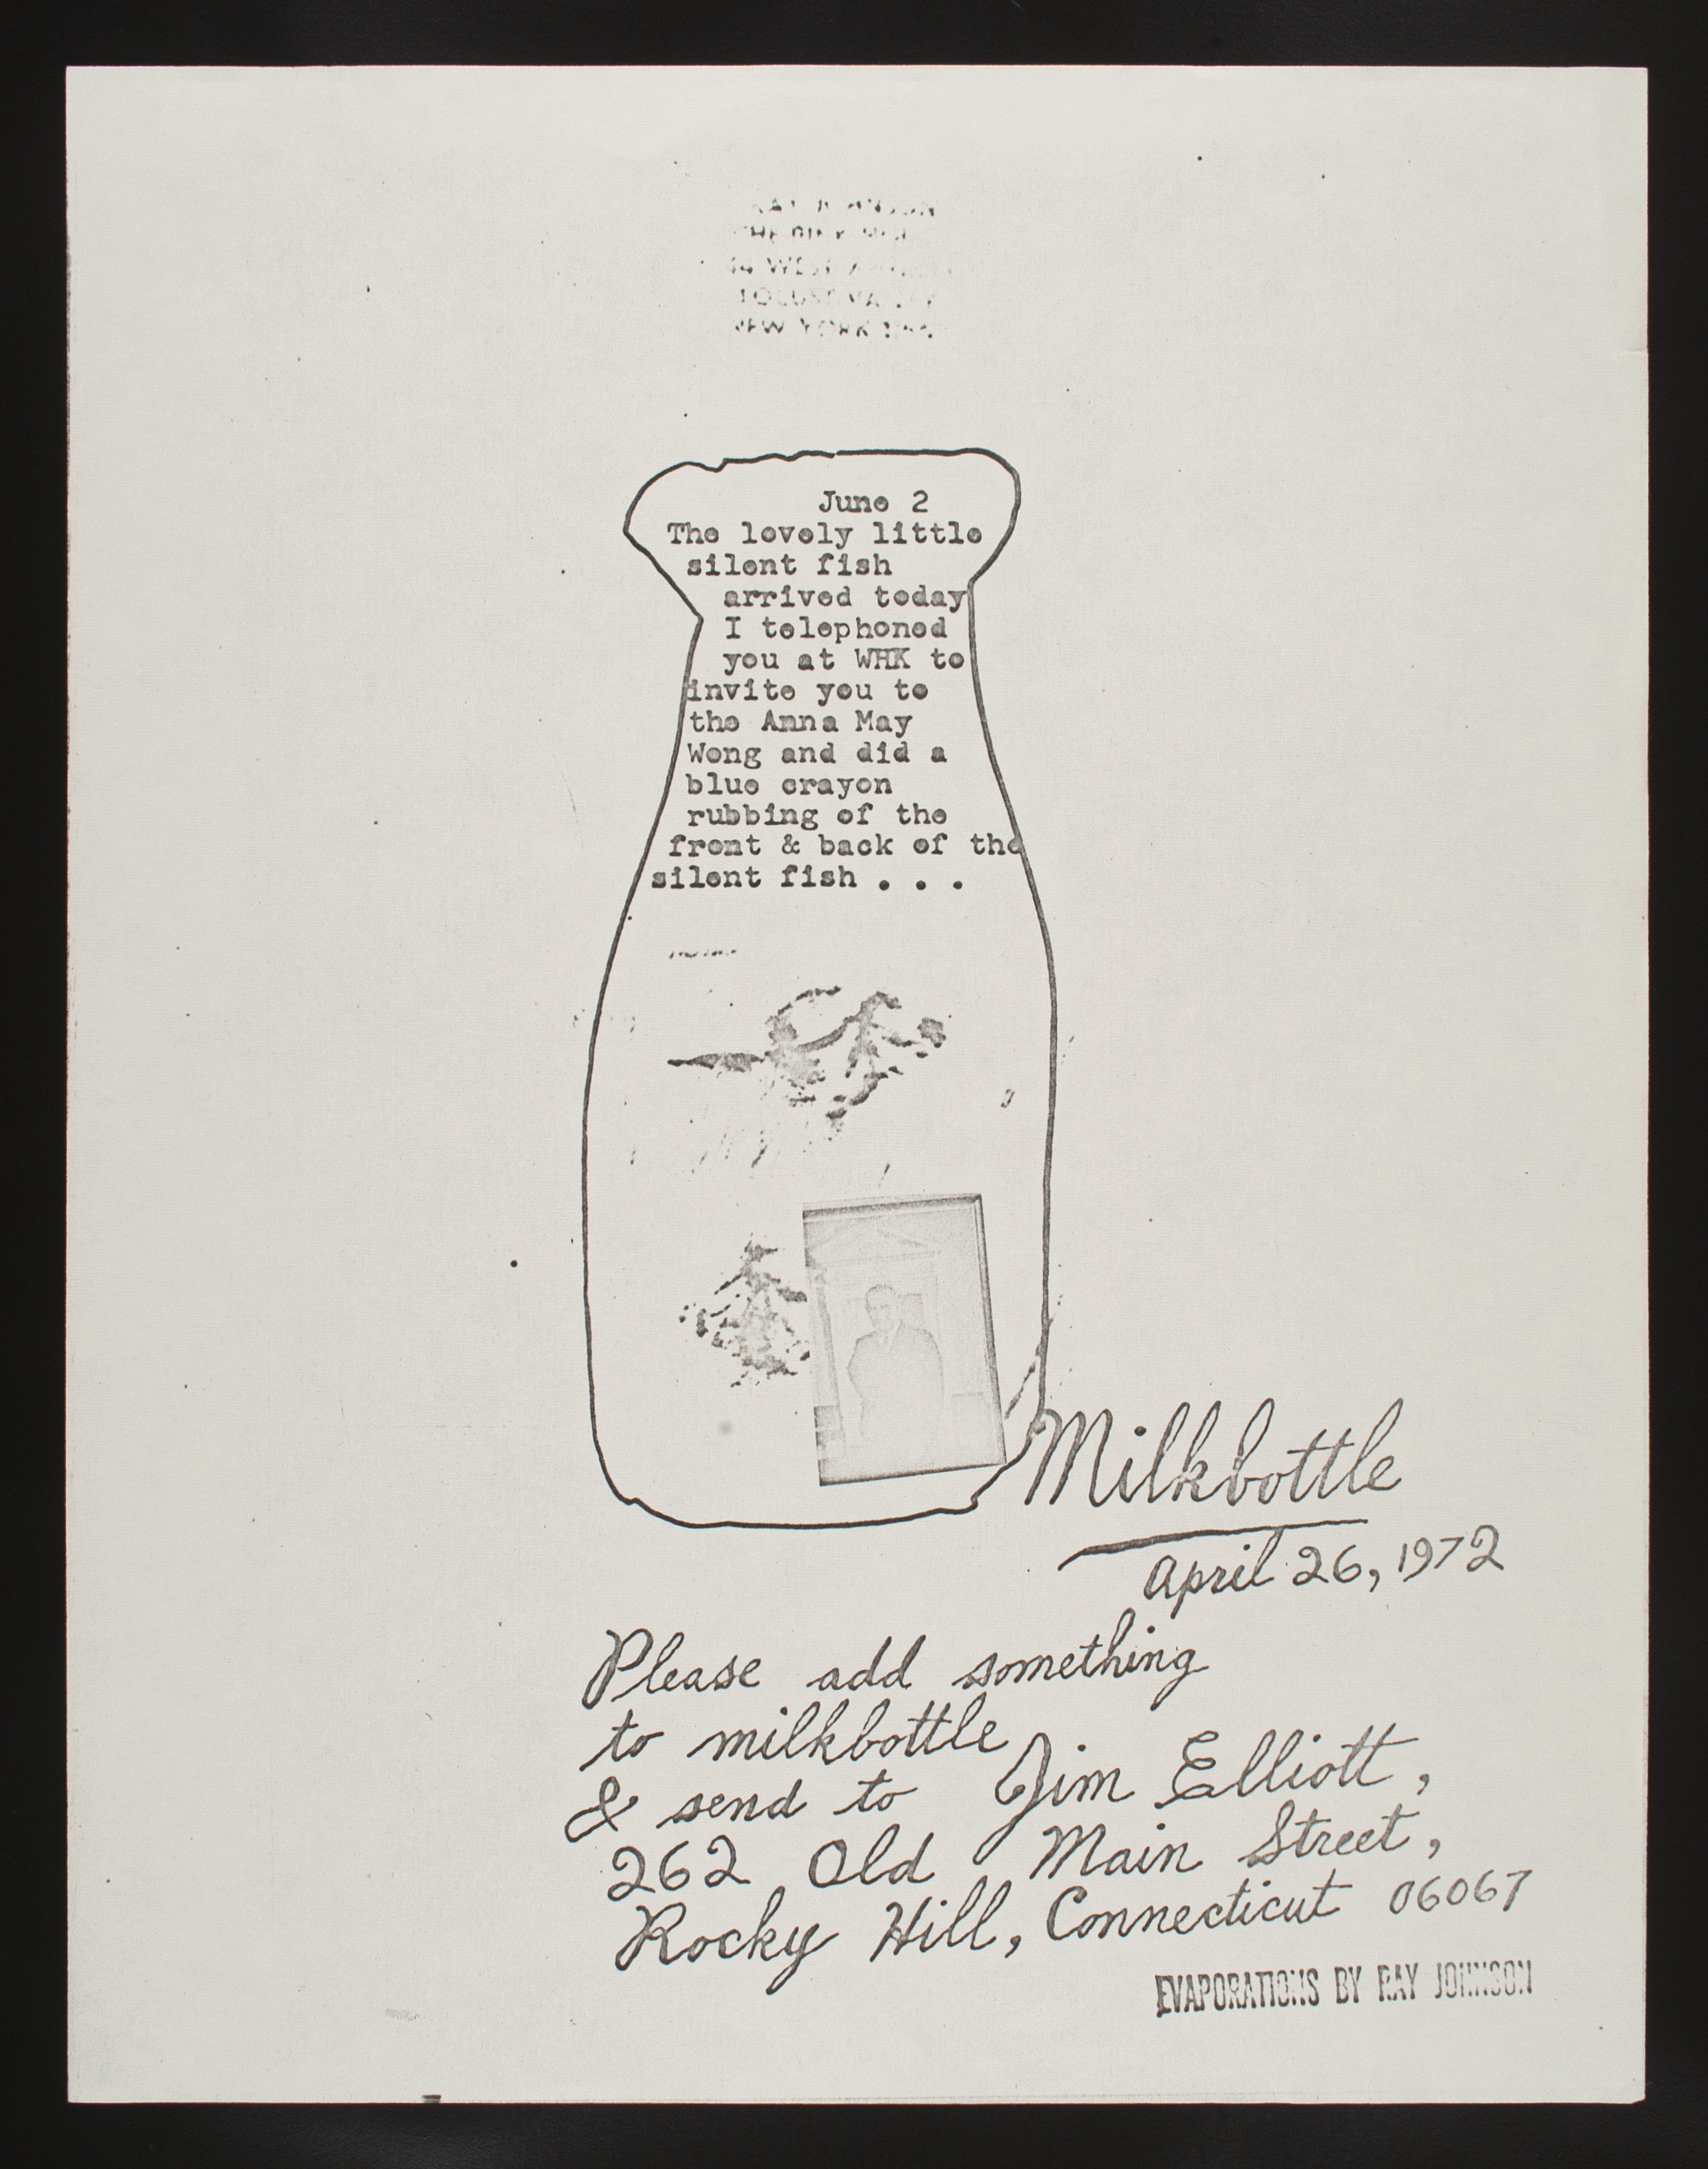 NEW YORK
June 2
The lovely little
silent fish
arrived today
I telephoned
you at WHK to
invite you to
the Anna May
Wong and did a
blue crayon
rubbing of the
front & back of the
silent fish . . .
Milkbottle
April 26, 1972
Please add something
to milkbottle
& send to Jim Elliott,
262 Old Main Street,
Rocky Hill, Connecticut 06067
EVAPORATIONS BY RAY JOHNSON